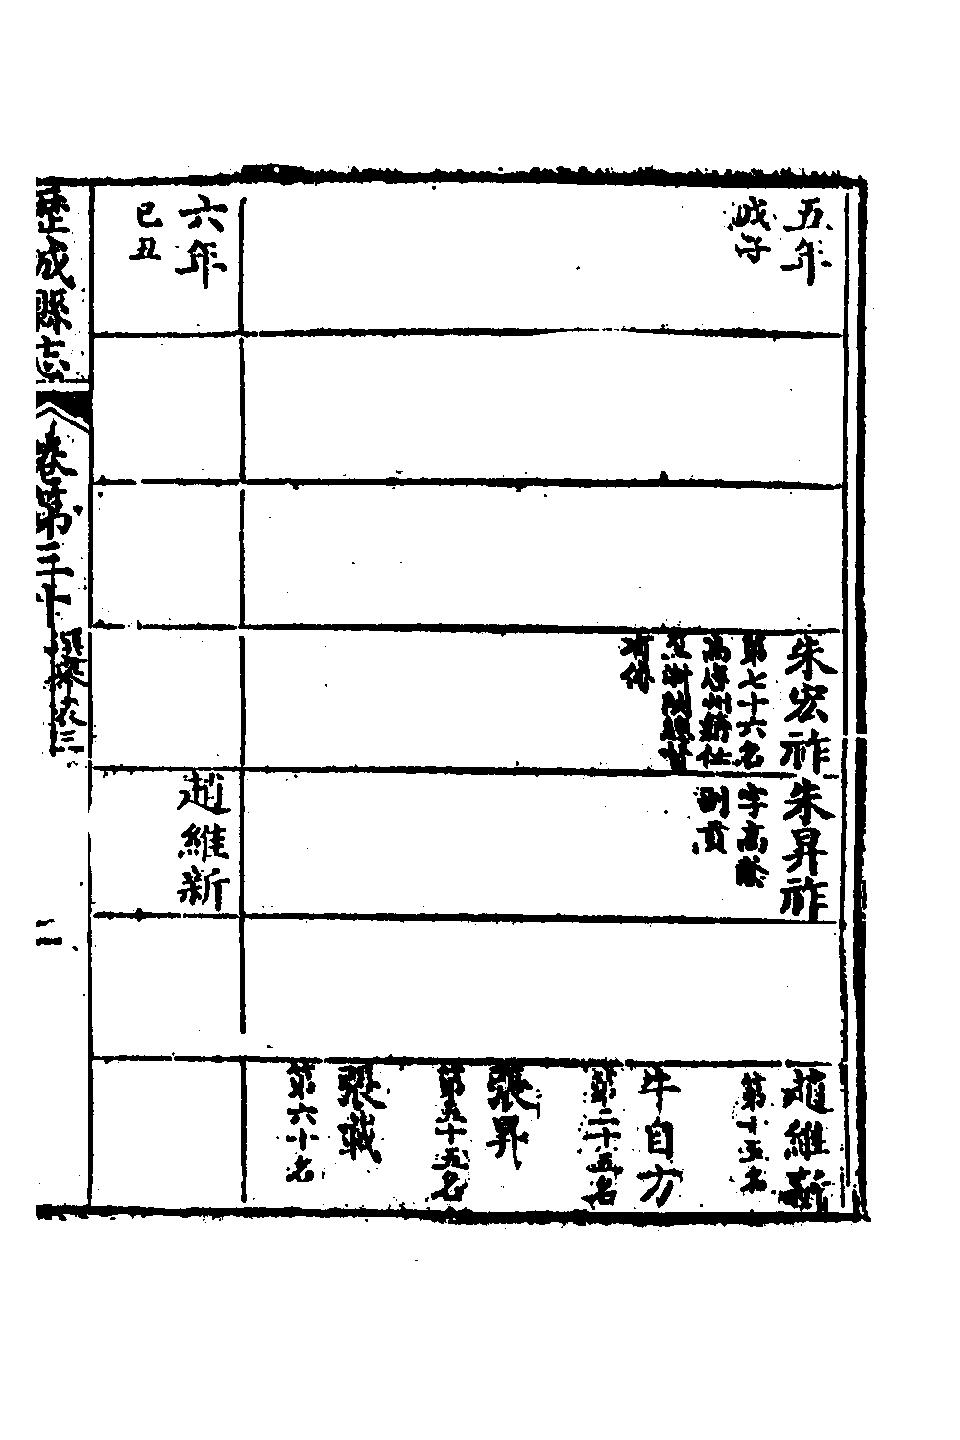 五年
戊子
朱宏祚
第七十六名
高唐州籍仕
至浙閩總督
有傳
朱昇祚
字高齡
副貢
趙維新
第十五名
牛自方
第二十五名
張昇
第五十五名
張職
第六十名
六年
己丑
趙維新
歷城縣志
卷第三十
選舉表三
一